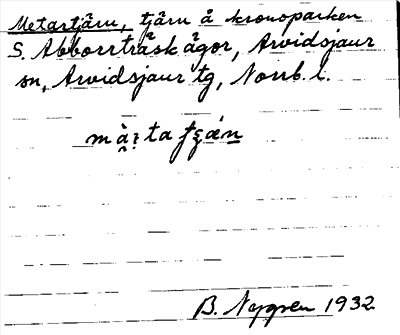 Metartjärn, tjärn å kronoparken
S. Abborrträskågor, Arvidsjaur
sn, Arvidsjaur tg, Norrb. l.
B. Nygren 1932